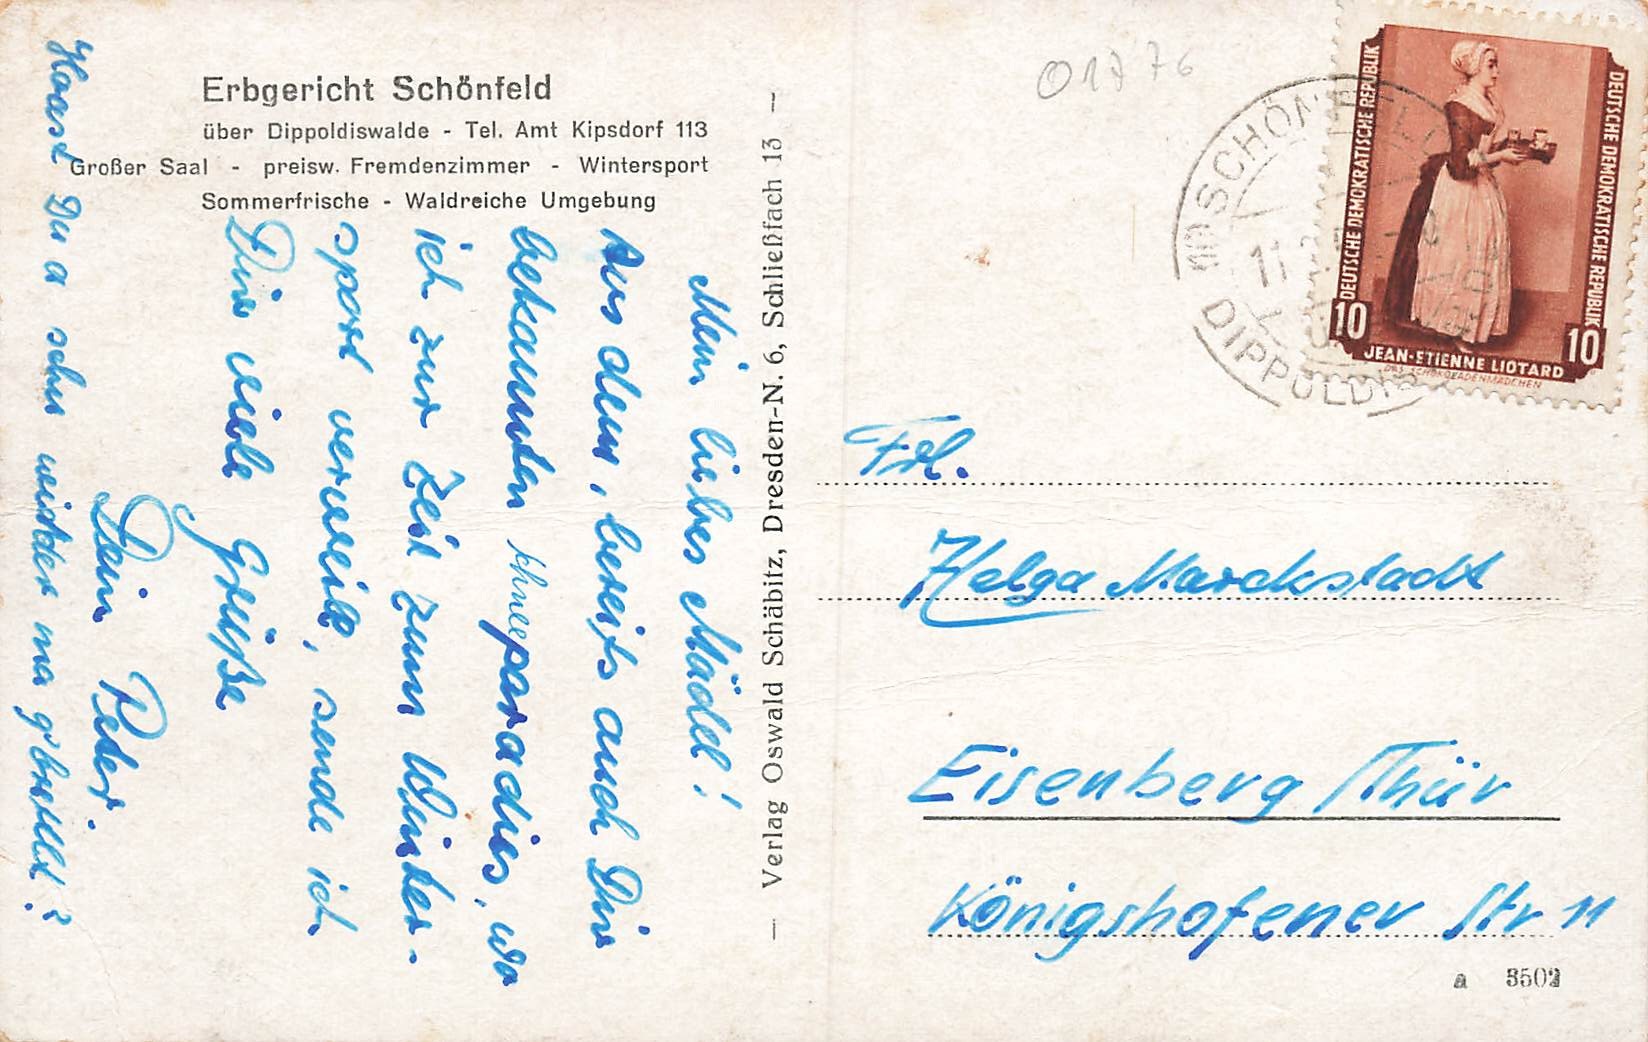 Erbgericht Schönfeld
über Dippoldiswalde - Tel. Amt Kipsdorf 113
Großer Saal - preisw. Fremdenzimmer - Wintersport
Sommerfrische - Waldreiche Umgebung
Mein liebes Mädel!
Aus dem, bereits auch Dir
bekannten Schneeparadies, wo
ich zur Zeit zum Winter-
sport verweile, sende ich
Dir viele Grüße
Dein Peter.
Hoast Du a schu widder ma g'brullt?
— Verlag Oswald Schäbitz, Dresden-N. 6, Schließfach 13 —
01776
SCHÖNFELD
DIPPOLDIS
DEUTSCHE DEMOKRATISCHE REPUBLIK
DEUTSCHE DEMOKRATISCHE REPUBLIK
10
10
JEAN-ETIENNE LIOTARD
DAS SCHOKOLADENMÄDCHEN
Frl.
Helga Marckstadt
Eisenberg /Thür
Königshofener Str 11
a 3502